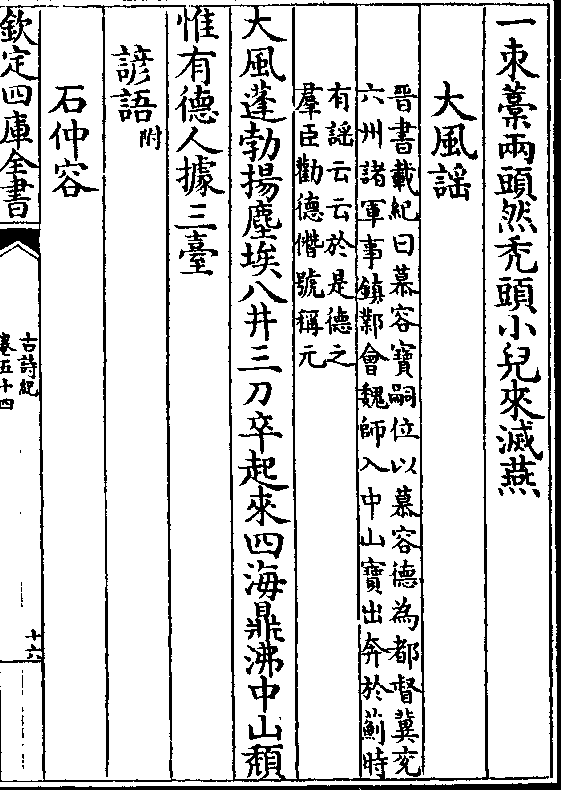 一朿藁兩頭然禿頭小兒來滅燕
大風謡
晉書載紀曰慕容寶嗣位以慕容德為都督冀兖
六州諸軍事鎮鄴會魏師入中山寶出奔於薊時
有謡云云於是德之
羣臣勸德僭號稱元
大風蓬勃揚塵埃八井三刀卒起來四海鼎沸中山頽
惟有德人據三臺
諺語附
石仲容
欽定四庫全書
古詩紀
卷五十四
十六